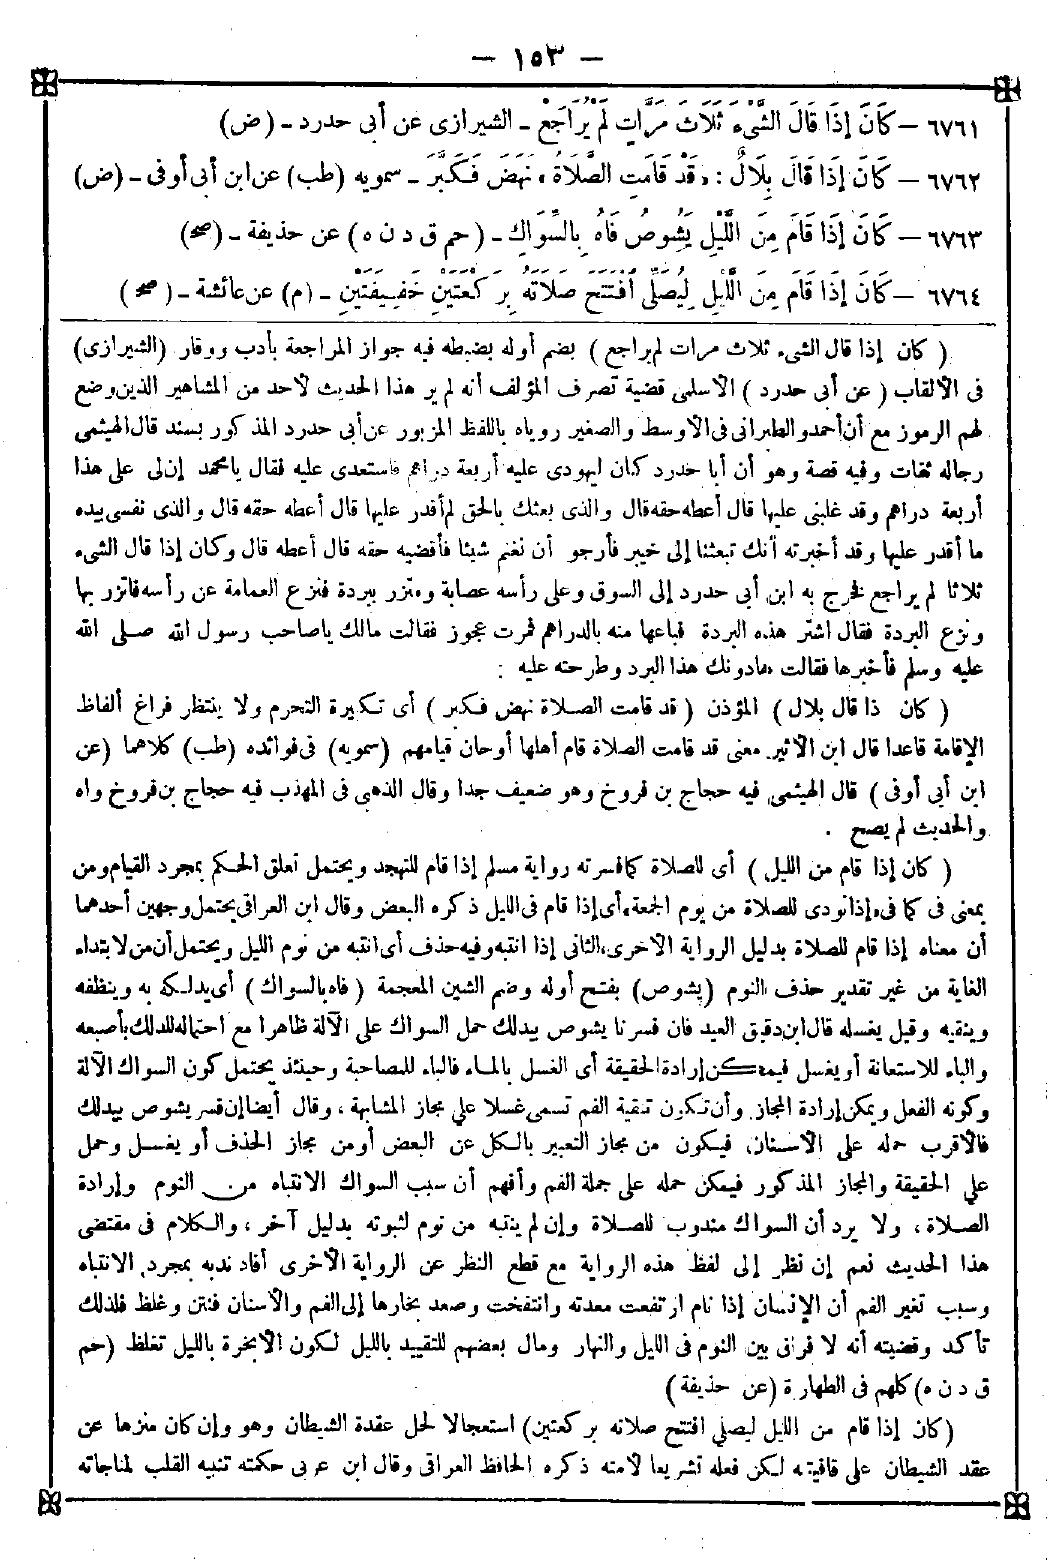 — ١٥٣ —
٦٧٦١ — كَانَ إِذَا قَالَ الشَّىْءَ ثَلَاثَ مَرَّاتٍ لَمْ يُرَاجَعْ ـ الشيرازى عن أبى حدرد ـ (ض)
٦٧٦٢ — كَانَ إِذَا قَالَ بِلَالٌ : «قَدْ قَامَتِ الصَّلَاةُ» نَهَضَ فَكَبَّرَ ـ سمويه (طب) عن ابن أبى أوفى ـ (ض)
٦٧٦٣ — كَانَ إِذَا قَامَ مِنَ اللَّيْلِ يَشُوصُ فَاهُ بِالسِّوَاكِ ـ (حم ق د ن ه) عن حذيفة ـ (صح)
٦٧٦٤ — كَانَ إِذَا قَامَ مِنَ اللَّيْلِ لِيُصَلِّىَ افْتَتَحَ صَلَاتَهُ بِرَكْعَتَيْنِ خَفِيفَتَيْنِ ـ (م) عن عائشة ـ (صح)
( كان إذا قال الشىء ثلاث مرات لم يراجع ) بضم أوله بضبطه فيه جواز المراجعة بأدب ووقار (الشيرازى)
فى الألقاب ( عن أبى حدرد ) الأسلمى قضية تصرف المؤلف أنه لم ير هذا الحديث لأحد من المشاهير الذين وضع
لهم الرموز مع أن أحمد والطبرانى فى الأوسط والصغير روياه باللفظ المزبور عن أبى حدرد المذكور بسند قال الهيثمى
رجاله ثقات وفيه قصة وهو أن أبا حدرد كان ليهودى عليه أربعة دراهم فاستعدى عليه فقال يا محمد إن لى على هذا
أربعة دراهم وقد غلبنى عليها قال أعطه حقه قال والذى بعثك بالحق لم أقدر عليها قال أعطه حقه قال والذى نفسى بيده
ما أقدر عليها وقد أخبرته أنك تبعثنا إلى خيبر فأرجو أن نغنم شيئا فأقضيه حقه قال أعطه قال وكان إذا قال الشىء
ثلاثا لم يراجع فخرج به ابن أبى حدرد إلى السوق وعلى رأسه عصابة ومتزر ببردة فنزع العمامة عن رأسه فاتزر بها
ونزع البردة فقال اشتر هذه البردة فباعها منه بالدراهم فمرت عجوز فقالت مالك ياصاحب رسول الله صلى الله
عليه وسلم فأخبرها فقالت هادونك هذا البرد وطرحته عليه :
( كان ذا قال بلال ) المؤذن ( قد قامت الصلاة نهض فكبر ) أى تكبيرة التحرم ولا ينتظر فراغ ألفاظ
الإقامة قاعدا قال ابن الأثير معنى قد قامت الصلاة قام أهلها أو حان قيامهم (سمويه) فى فوائده (طب) كلاهما (عن
ابن أبى أوفى ) قال الهيثمى فيه حجاج بن فروخ وهو ضعيف جدا وقال الذهبى فى المهذب فيه حجاج بن فروخ واه
والحديث لم يصح .
( كان إذا قام من الليل ) أى للصلاة كما فسرته رواية مسلم إذا قام للتهجد ويحتمل تعلق الحكم بمجرد القيام ومن
بمعنى فى كما فى «إذا نودى للصلاة من يوم الجمعة» أى إذا قام فى الليل ذكره البعض وقال ابن العراقى يحتمل وجهين أحدهما
أن معناه إذا قام للصلاة بدليل الرواية الأخرى، الثانى إذا انتبه وفيه حذف أى انتبه من نوم الليل ويحتمل أن من لابتداء
الغاية من غير تقدير حذف النوم (يشوص) بفتح أوله وضم الشين المعجمة ( فاه بالسواك ) أى يدلكه به وينظفه
وينقيه وقيل يغسله قال ابن دقيق العيد فان فسرنا يشوص بيدلك حمل السواك على الآلة ظاهرا مع احتماله للدلك بأصبعه
والباء للاستعانة أو يغسل فيمكن إرادة الحقيقة أى الغسل بالماء فالباء للمصاحبة وحينئذ يحتمل كون السواك الآلة
وكونه الفعل ويمكن إرادة المجاز وأن تكون تنقية الفم تسمى غسلا على مجاز المشابهة ، وقال أيضا إن فسر يشوص بيدلك
فالأقرب حمله على الأسنان فيكون من مجاز التعبير بالكل عن البعض أو من مجاز الحذف أو يغسل وحمل
على الحقيقة والمجاز المذكور فيمكن حمله على جملة الفم وأفهم أن سبب السواك الانتباه من النوم وإرادة
الصلاة ، ولا يرد أن السواك مندوب للصلاة وإن لم ينتبه من نوم لثبوته بدليل آخر ، والكلام فى مقتضى
هذا الحديث نعم إن نظر إلى لفظ هذه الرواية مع قطع النظر عن الرواية الأخرى أفاد ندبه بمجرد الانتباه
وسبب تغير الفم أن الإنسان إذا نام ارتفعت معدته وانتفخت وصعد بخارها إلى الفم والأسنان فنتن وغلظ فلذلك
تأكد وقضيته أنه لا فرق بين النوم فى الليل والنهار ومال بعضهم للتقييد بالليل لكون الأبخرة بالليل تغلظ (حم
ق د ن ه) كلهم فى الطهارة (عن حذيفة )
(كان إذا قام من الليل ليصلي افتتح صلاته بركعتين) استعجالا لحل عقدة الشيطان وهو وإن كان منزها عن
عقد الشيطان على قافيته لكن فعله تشريعا لأمته ذكره الحافظ العراقى وقال ابن عربى حكمته تنبيه القلب لمناجاته